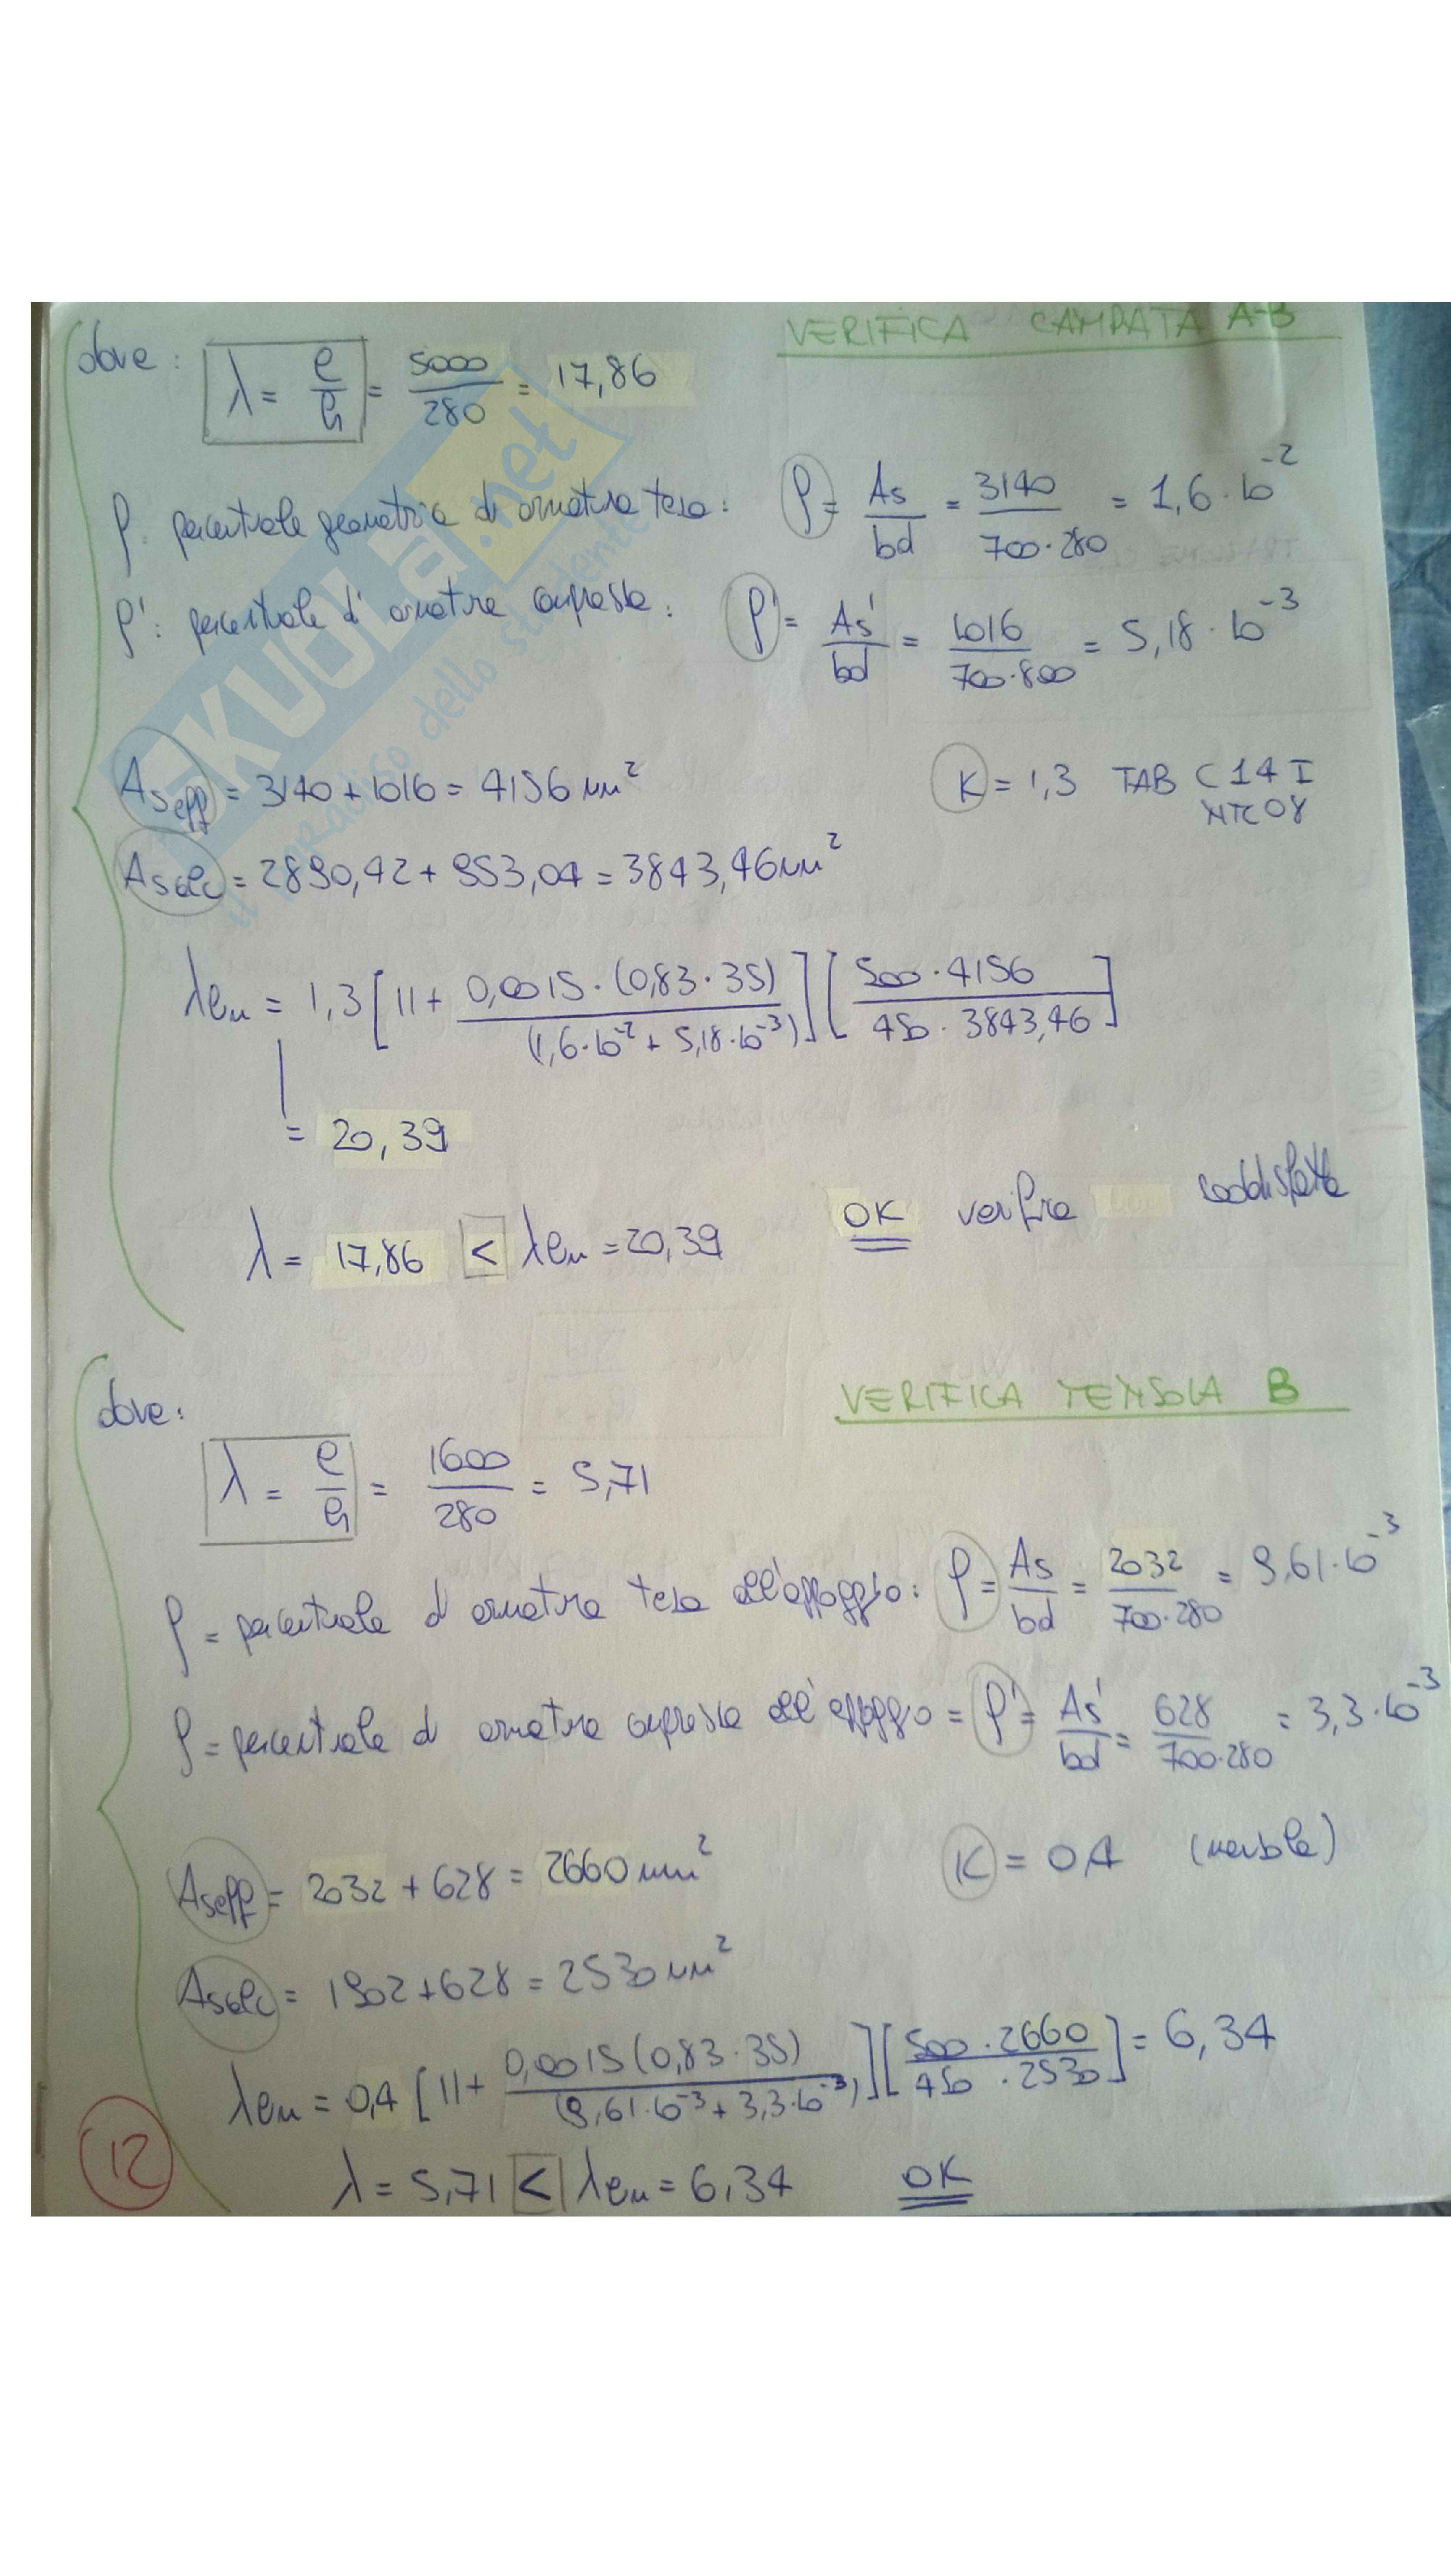 VERIFICA CAMPATA A-B
dove: λ = l/h = 5000/280 = 17,86
ρ: percentuale geometrica di armatura tesa: ρ = As/bd = 3140/700·280 = 1,6·10⁻²
ρ': percentuale di armatura compressa: ρ' = As'/bd = 1016/700·800 = 5,18·10⁻³
As eff = 3140 + 1016 = 4156 mm²
K = 1,3 TAB C 14 I
NTC 08
As calc = 2890,42 + 953,04 = 3843,46 mm²
λlim = 1,3 [11 + 0,0015·(0,83·35)/(1,6·10⁻² + 5,18·10⁻³)] [500·4156/450·3843,46]
= 20,39
λ = 17,86 < λlim = 20,39 OK verifica soddisfatta
VERIFICA MENSOLA B
dove:
λ = l/h = 1600/280 = 5,71
ρ = percentuale di armatura tesa all'appoggio: ρ = As/bd = 2032/700·280 = 9,61·10⁻³
ρ = percentuale di armatura compressa all'appoggio = ρ' = As'/bd = 628/700·280 = 3,3·10⁻³
As eff = 2032 + 628 = 2660 mm²
K = 0,4 (mensola)
As calc = 1902 + 628 = 2530 mm²
λlim = 0,4 [11 + 0,0015(0,83·35)/(9,61·10⁻³ + 3,3·10⁻³)] [500·2660/450·2530] = 6,34
λ = 5,71 < λlim = 6,34 OK
12
SKUOLA.net
il paradiso dello studente